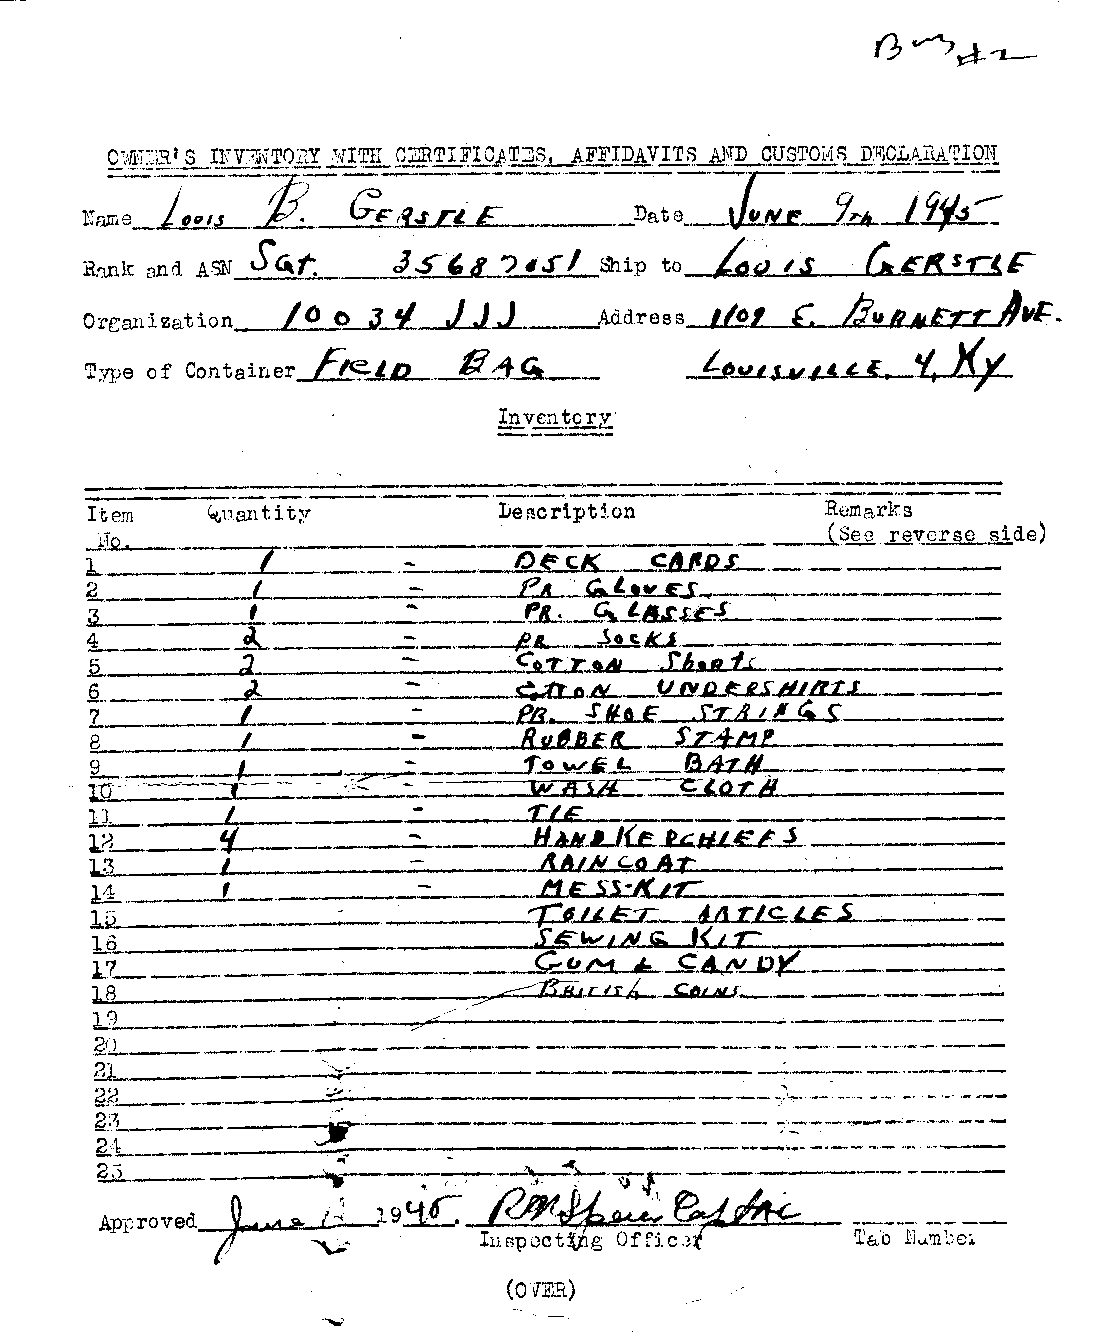 #2
OWNER'S INVENTORY WITH CERTIFICATES, AFFIDAVITS AND CUSTOMS DECLARATION
Name Louis B. GERSTLE Date JUNE 9TH 1945
Rank and ASN SGT. 35687051 Ship to LOUIS GERSTLE
Organization 10034 JJJ Address 1109 E. BURNETT AVE.
Type of Container FIELD BAG LOUISVILLE, 4, KY
Inventory
Item Quantity Description Remarks
No. (See reverse side)
1 1 - DECK CARDS
2 1 - PR GLOVES
3 1 - PR. GLASSES
4 2 - PR SOCKS
5 2 - COTTON Shorts
6 2 - COTTON UNDERSHIRTS
7 1 - PR. SHOE STRINGS
8 1 - RUBBER STAMP
9 1 - TOWEL BATH
10 1 - WASH CLOTH
11 1 - TIE
12 4 - HANDKERCHIEFS
13 1 - RAINCOAT
14 1 - MESS-KIT
15 TOILET ARTICLES
16 SEWING KIT
17 GUM & CANDY
18 BRITISH COINS
19
20
21
22
23
24
25
Approved June 1945.
Inspecting Officer Tab Number
(OVER)